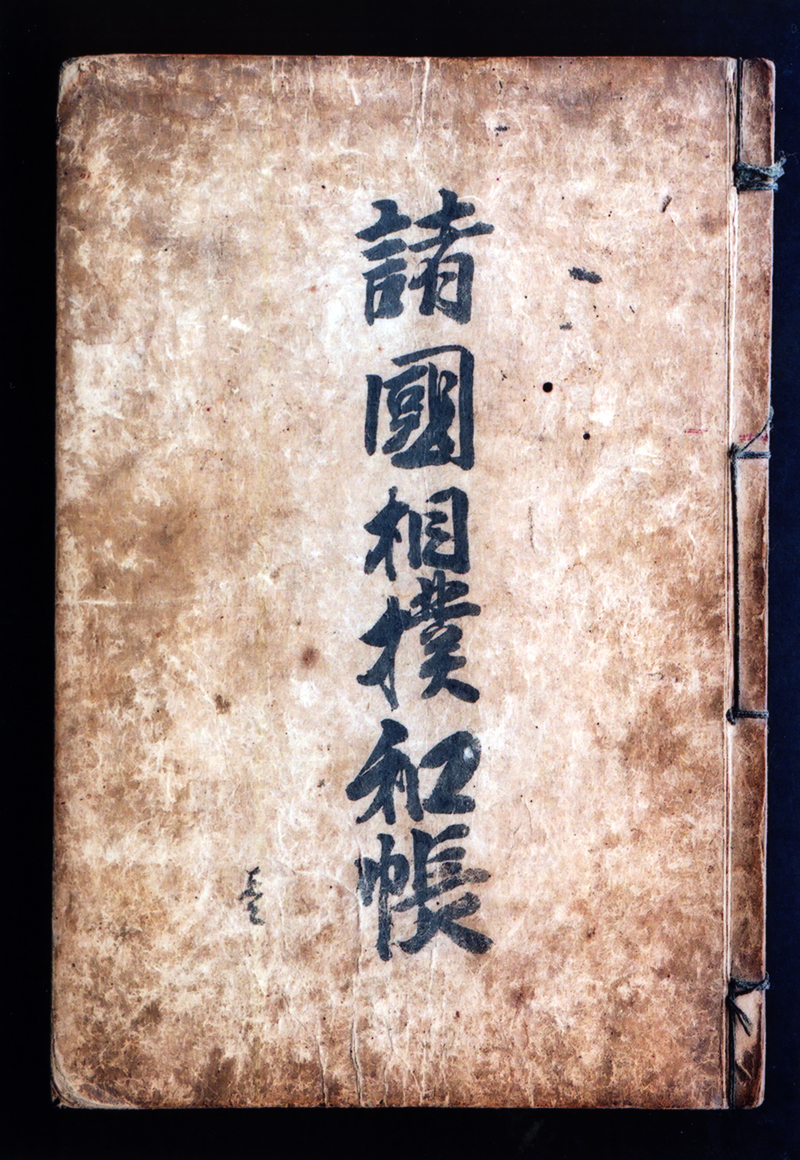 諸國相撲和帳